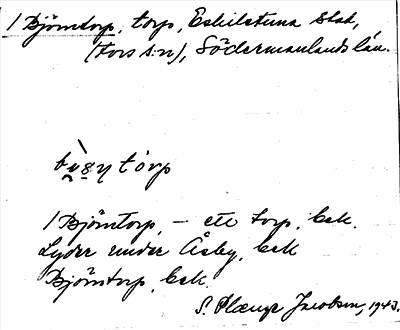 1 Björntorp, torp, Eskilstuna stad,
(Fors s:n), Södermanlands län.
1 Björntorp, – ett torp, bek.
Lyder under Åsby, bek
Björntorp, bek.
S. Plænge Jacobson, 1943.